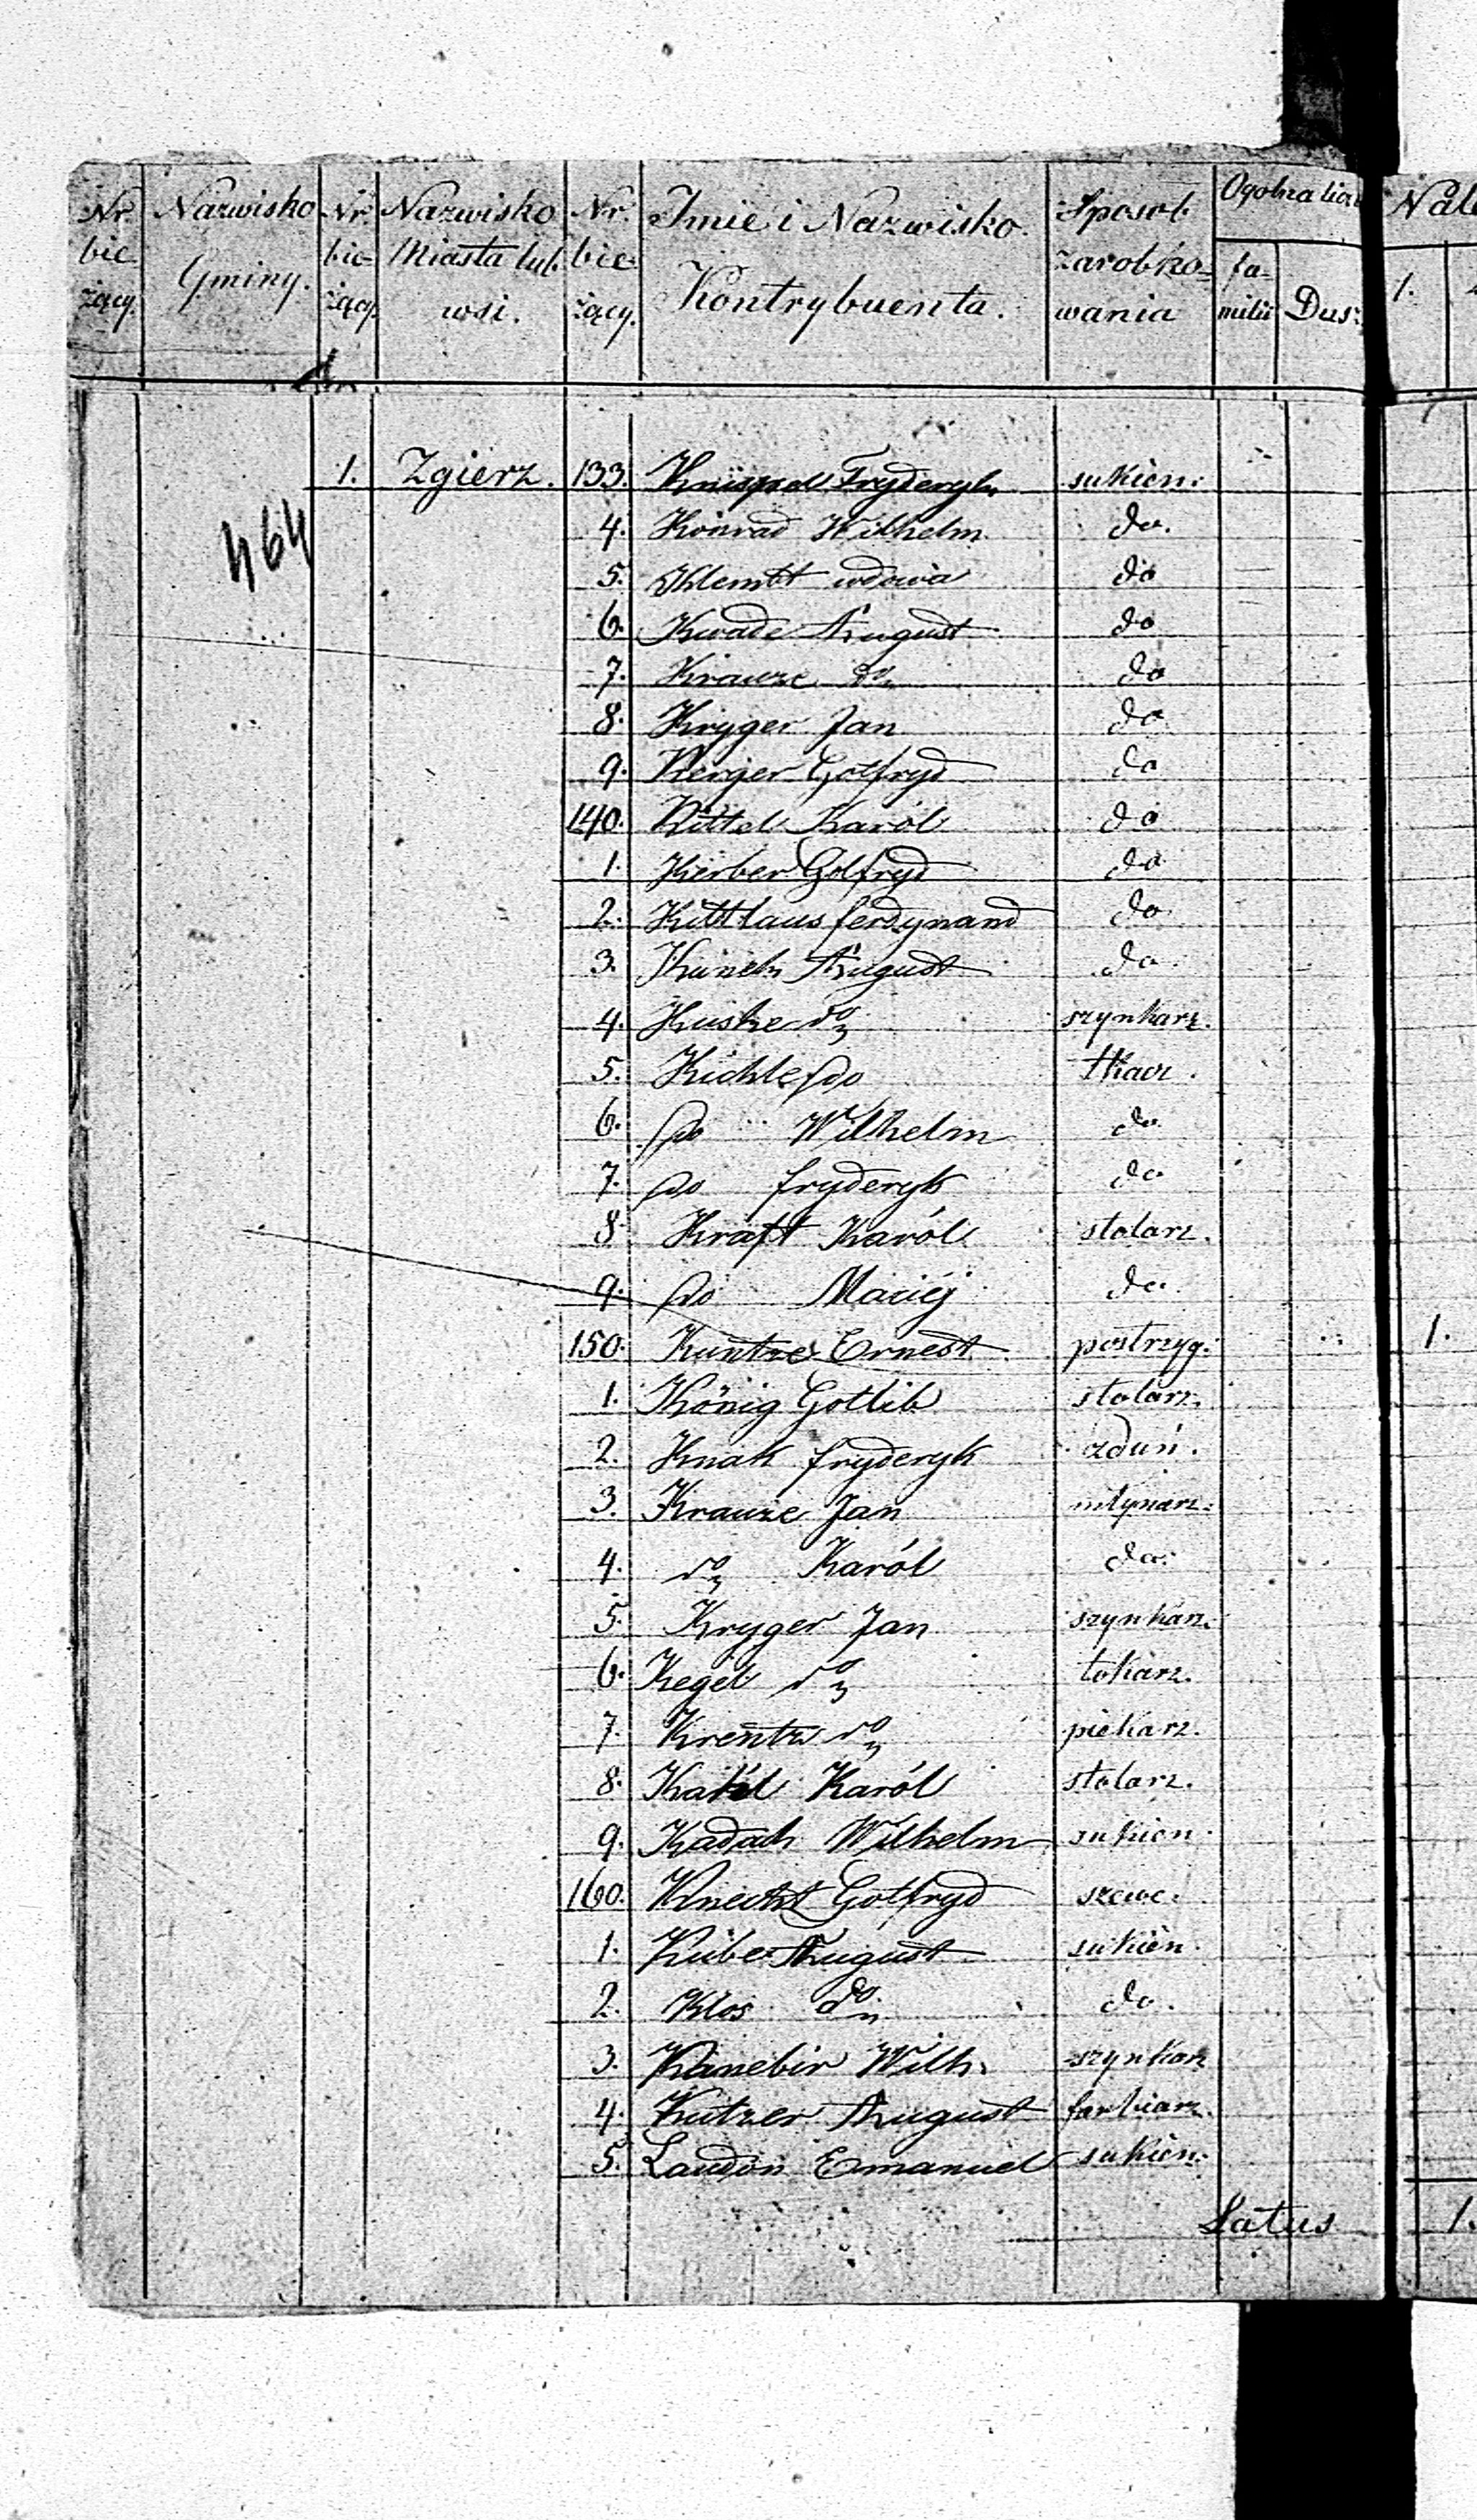 Nr. bie- żący. Nazwisko Gminy. Nr. bie- żący. Nazwisko Miasta lub wsi. Nr. bie- żący. Imie i Nazwisko Kontrybuenta. Sposob zarobko- wania Ogolna fa- milii Dusz 1.
464
1. Zgierz. 133. Knispel Fryderyk sukien:
4. Konrad Wilhelm do.
5. Klembt wdowa do
6. Kwade August do
7. Krauze do do
8. Kryger Jan do
9. Kerger Gotfryd do
140. Kittel Karól do
1. Kierber Golfryd do
2. Kittlaus ferdynand do
3. August do
4. Kuske do szynkarz.
5. Kichle do tkacz.
6. do Wilhelm do
7. do fryderyk do
8. Kraft Karól stolarz.
9. do Maciéj do.
150. Kuntze Ernest postrzyg:
1. König Gotlib stolarz.
2. Knak fryderyk zduń.
3. Krauze Jan młynarz.
4. do Karól do:
5. Kryger Jan szynkarz.
6. Kegel do tokarz.
7. Krentz do piekarz.
8. Karól stolarz.
9. Kadach Wilhelm sukien
160. Knecht Gotfryd szewc.
1. Kube August sukien
2. Klos do do.
3. Kanebir Wilh. szynkarz
4. Kutzer August farbiarz.
5. Laudon Emanuel sukien:
Latus 1.